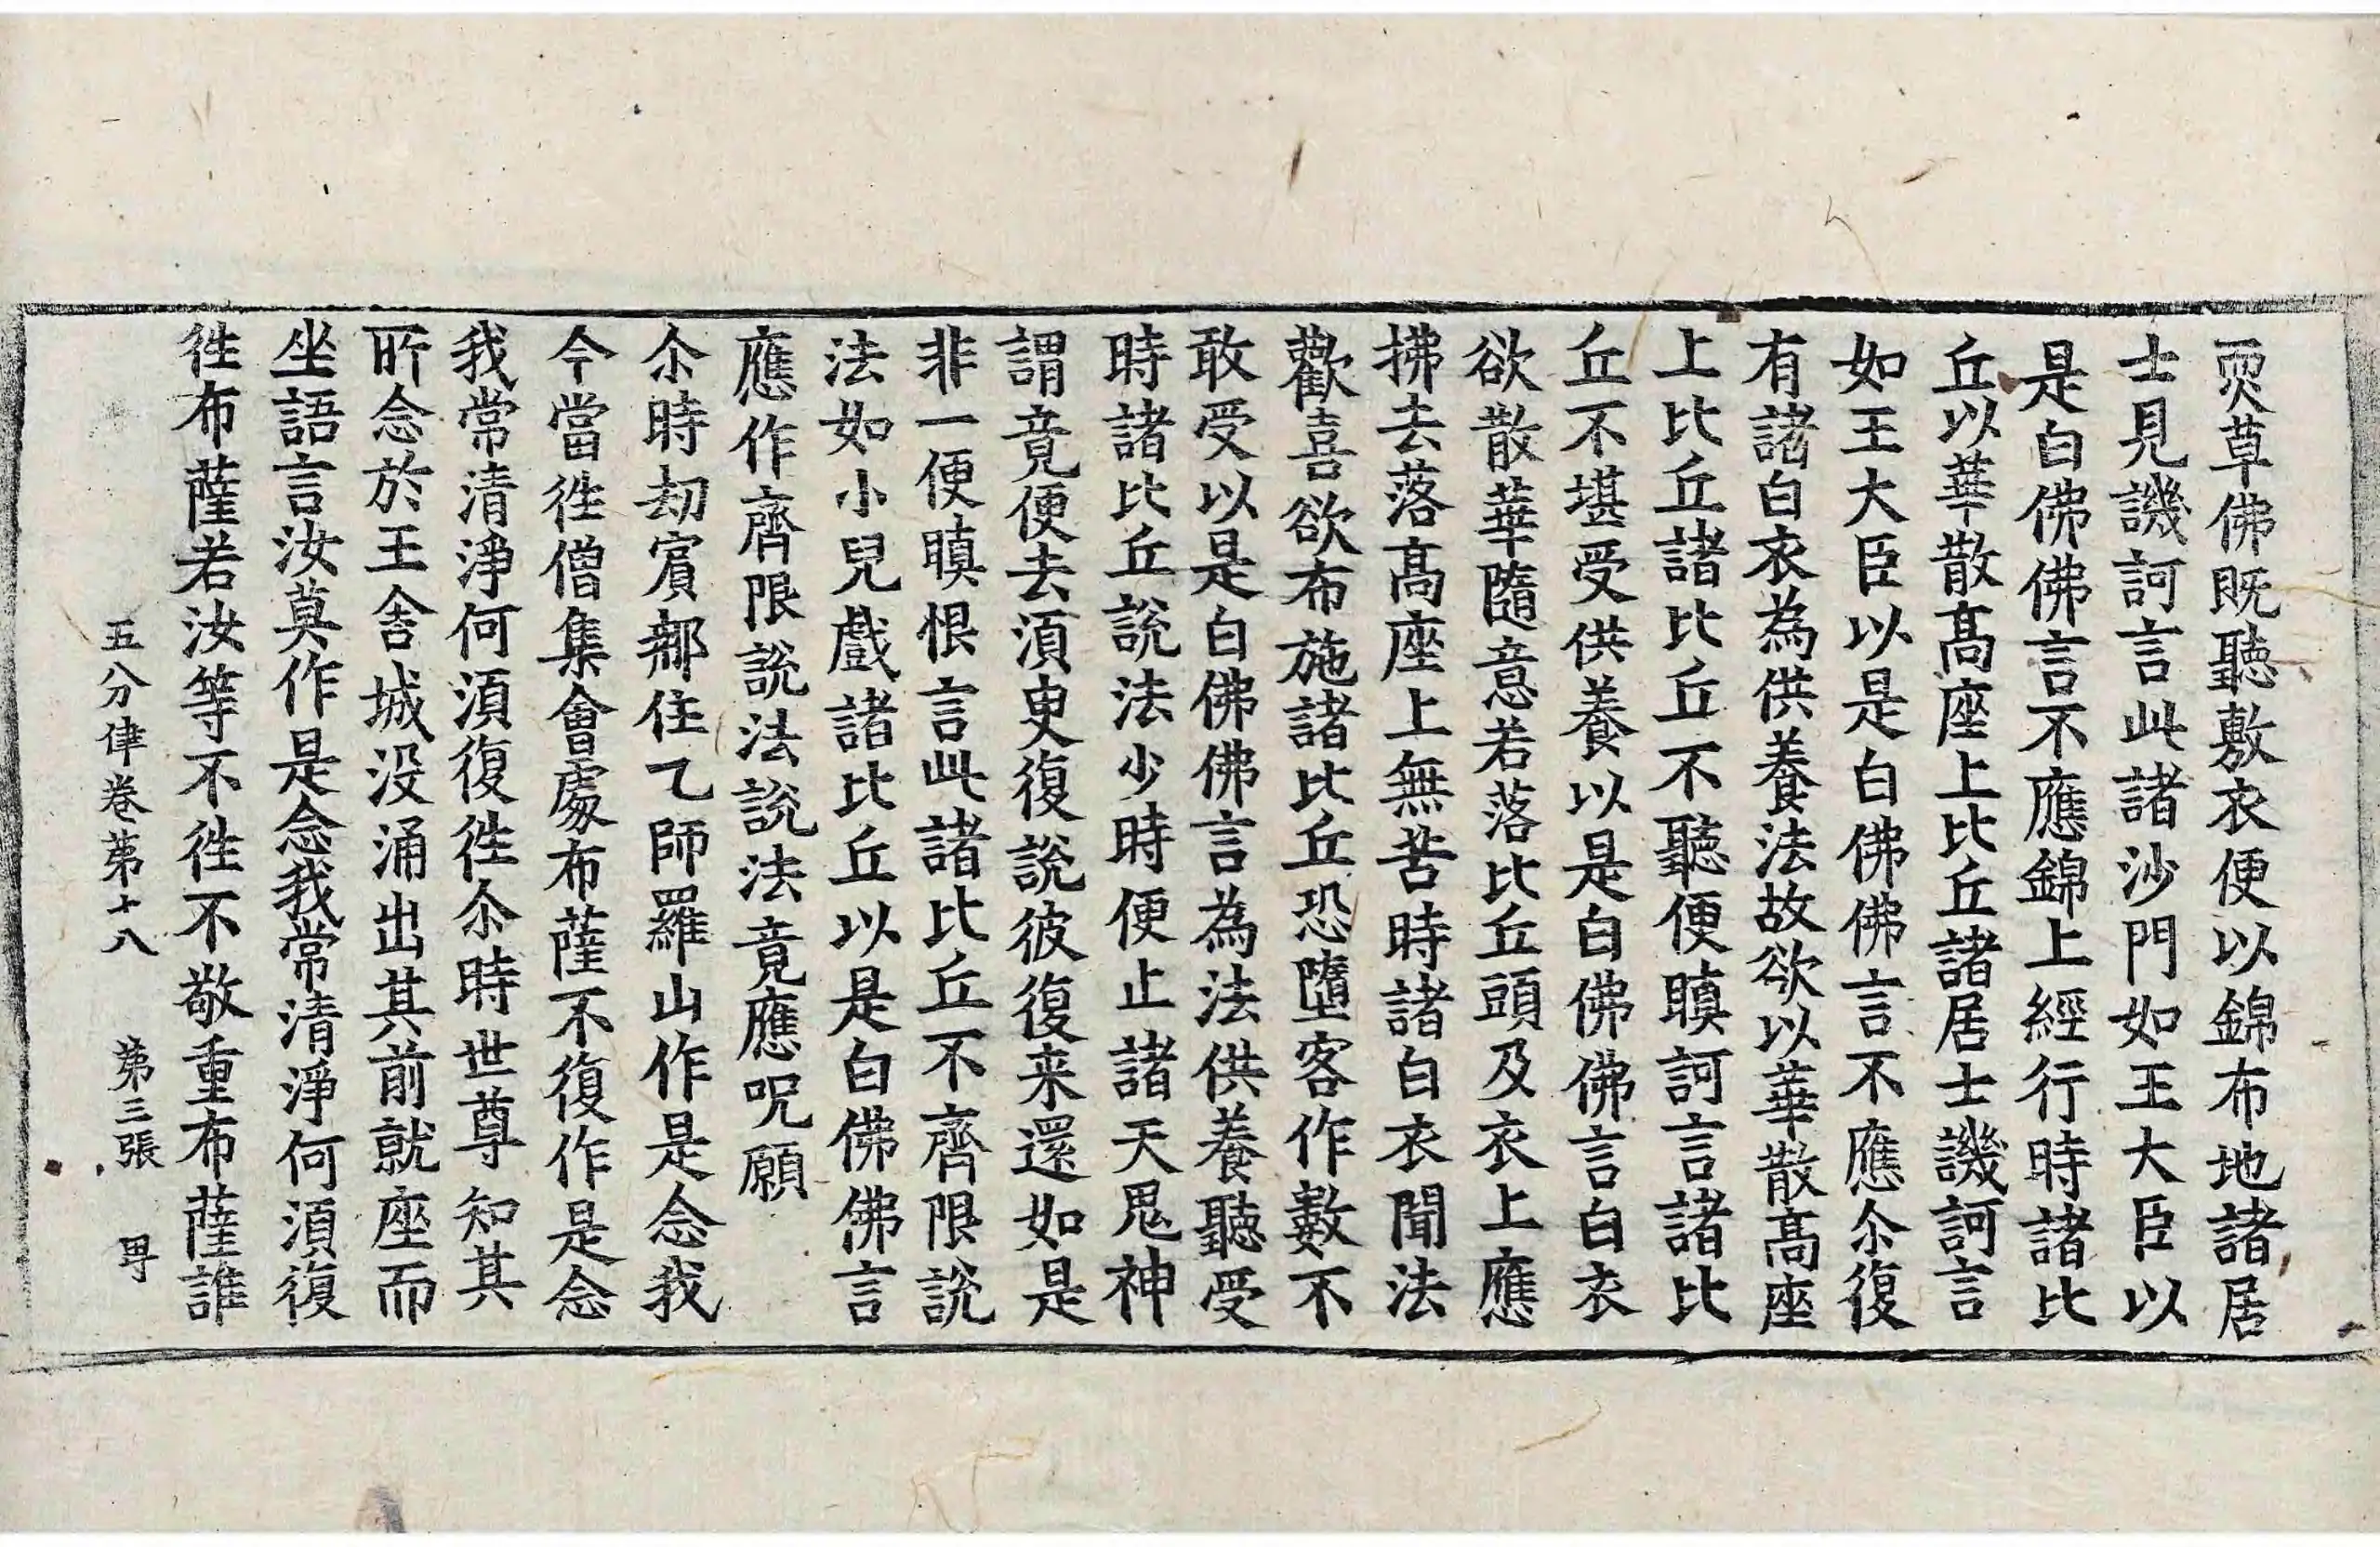 耎草佛既聽敷衣便以錦布地諸居
士見譏訶言此諸沙門如王大臣以
是白佛佛言不應錦上經行時諸比
丘以華散高座上比丘諸居士譏訶言
如王大臣以是白佛佛言不應尒復
有諸白衣為供養法故欲以華散高座
上比丘諸比丘不聽便瞋訶言諸比
丘不堪受供養以是白佛佛言白衣
欲散華隨意若落比丘頭及衣上應
拂去落高座上無苦時諸白衣聞法
歡喜欲布施諸比丘恐墮客作數不
敢受以是白佛佛言為法供養聽受
時諸比丘說法少時便止諸天鬼神
謂竟便去須臾復說彼復来還如是
非一便瞋恨言此諸比丘不齊限說
法如小兒戲諸比丘以是白佛佛言
應作齊限說法說法竟應呪願
尒時劫賔郍住乙師羅山作是念我
今當徃僧集會處布薩不復作是念
我常清淨何須復徃尒時世尊知其
所念於王舍城没涌出其前就座而
坐語言汝莫作是念我常清淨何須復
徃布薩若汝等不徃不敬重布薩誰
五分律卷第十八　第三張